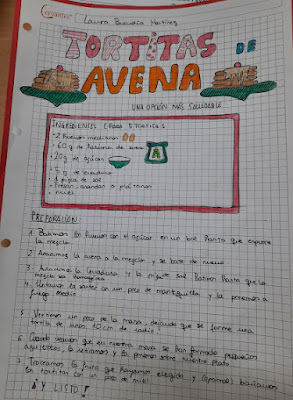 Laura
TORTITAS DE
AVENA
UNA OPCIÓN MÁS SALUDABLE
INGREDIENTES (para 5 tortitas)
• 2 huevos medianos
• 60 g de harina de avena
• 20g de azúcar
• 1 pizca de sal
• miel
PREPARACIÓN:
1. Batimos los huevos con el azúcar en un bol hasta que espume
la mezcla
2. Añadimos la avena a la mezcla y se bate de nuevo
3. Añadimos la levadura y la pizca de sal. Batimos hasta que la
mezcla sea homogénea
4. Untamos la sartén con un poco de mantequilla y la ponemos a
fuego medio
5. Vertimos un poco de la masa dejando que se forme una
tortita de unos 10 cm de radio
6. Cuando veamos que en nuestra masa se han formado pequeños
agujeritos, la volvemos y la ponemos sobre nuestro plato
7. Troceamos la fruta que hayamos elegido y
las tortitas con un poco de miel
¡Y LISTO!